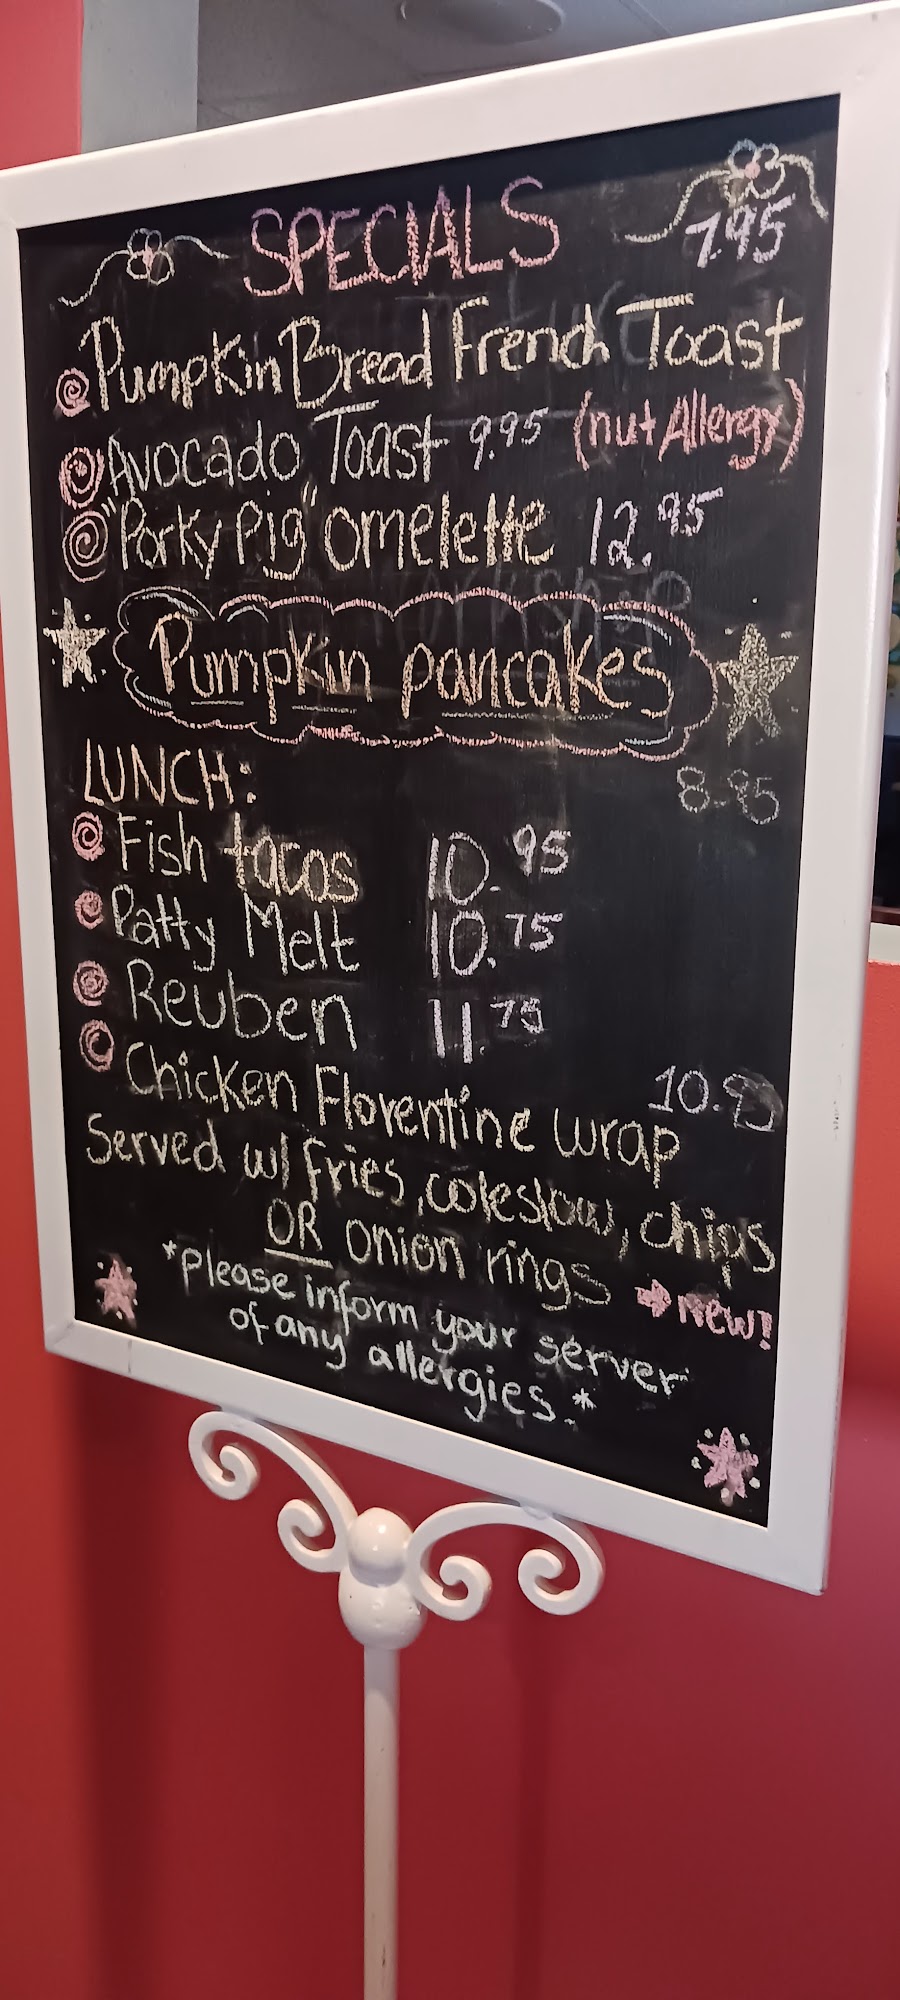 SPECIALS 7.95
Pumpkin Bread French Toast
Avocado Toast 9.95 (nut Allergy)
"Porky Pig" omelette 12.95
Pumpkin pancakes
8.95
LUNCH:
Fish tacos 10.95
Patty Melt 10.75
Reuben 11.75
10.95
Chicken Florentine wrap
Served w/ fries, coleslaw, chips
OR onion rings → new!
*please inform your server
of any allergies.*